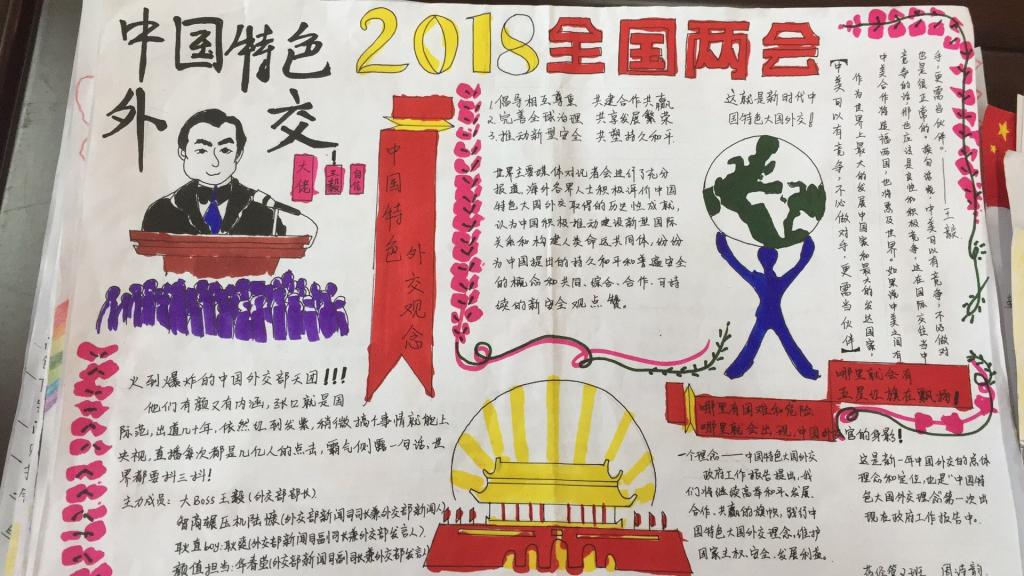 中国特色
外交
2018全国两会
大佬
王毅
自信
中国特色
外交观念
1.倡导相互尊重 共建合作共赢
2.完善全球治理 共享发展繁荣
3.推动新型安全 共塑持久和平
世界主要媒体对记者会进行了充分
报道,海外各界人士积极评价中国
特色大国外交取得的历史性成就,
认为中国积极推动建设新型国际
关系和构建人类命运共同体,纷纷
为中国提出的持久和平和普遍安全
的概念和共同、综合、合作、可持
续的新安全观点赞。
这就是新时代中
国特色大国外交!
【中美可以有竞争,不必做对手,更需当伙伴】
作为世界上最大的发展中国家和最大的发达国家,
中美合作将造福两国,也将惠及世界。如果海中美之间有
竞争的话那也应这是良性和积极竞争,这在国际交往当中
也是很正常的。换句话说,中美可以有竞争,不必做对
手,更需当伙伴。——王毅
火到爆炸的中国外交部天团!!!
他们有颜又有内涵,张口就是国
际范,出道几十年,依然红到发紫,稍微搞个事情就能上
央视,直播每次都是几亿人的点击,霸气侧露一句话,世
界都要抖三抖!
主力成员:大Boss王毅(外交部部长)
智商碾压机陆慷(外交部新闻司司长兼外交部新闻人)
耿直boy:耿爽(外交部新闻司副司长兼外交部发言人)
颜值担当:华春莹(外交部新闻司副司长兼外交部发言人)
哪里就会有
五星红旗在飘扬!
哪里有困难和危险
哪里就会出现,中国外交官的身影!
一个理念——中国特色大国外交
政府工作报告提出,我
们将继续高举和平、发展、
合作、共赢的旗帜,践行中
国特色大国外交理念,维护
国家主权、安全、发展利益。
这是新一年中国外交的总体
理念和定位,也是“中国特
色大国外交理念第一次出
现在政府工作报告中。